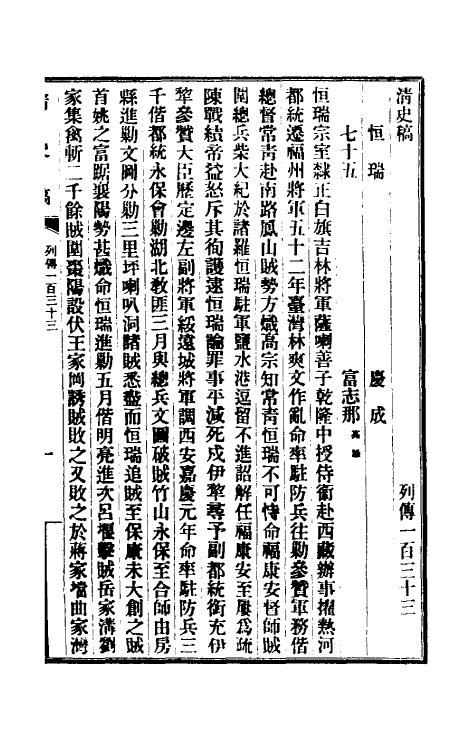 清史稿
列傳一百三十三
恒瑞
慶成
七十五
富志那
恒瑞宗室隸正白旗吉林將軍薩喇善子乾隆中授侍衛赴西藏辦事擢熱河
都統遷福州將軍五十二年臺灣林爽文作亂命率駐防兵往勦參贊軍務偕
總督常靑赴南路鳳山賊勢方熾高宗知常靑恒瑞不可恃命福康安督師賊
圍總兵柴大紀於諸羅恒瑞駐軍鹽水港逗留不進詔解任福康安至屢爲疏
陳戰績帝益怒斥其徇護逮恒瑞論罪事平減死戍伊犂尋予副都統銜充伊
犂參贊大臣歷定邊左副將軍綏遠城將軍調西安嘉慶元年命率駐防兵三
千偕都統永保會勦湖北敎匪三月與總兵文圖破賊竹山永保至合師由房
縣進勦文圖分勦三里坪喇叭洞諸賊悉盡而恒瑞追賊至保康未大創之賊
首姚之富踞襄陽勢甚熾命恒瑞進勦五月偕明亮進次呂堰擊賊岳家溝劉
家集禽斬二千餘賊圍棗陽設伏王家岡誘賊敗之又敗之於蔣家壋曲家灣
淸史稿
列傳一百三十三
一